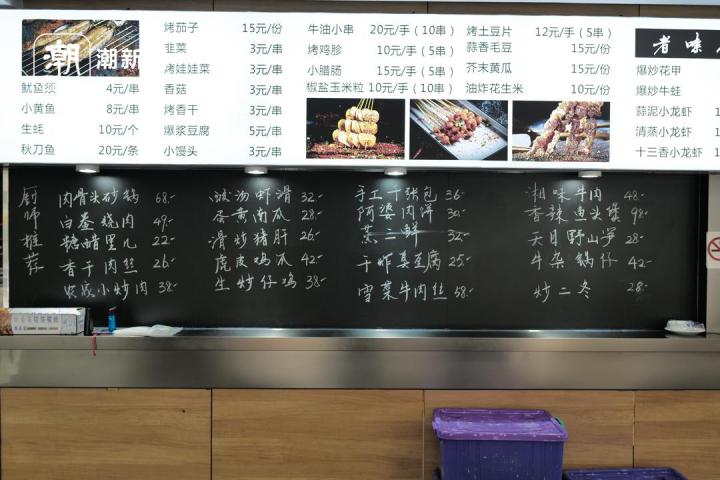 潮 潮新
鱿鱼须 4元/串
小黄鱼 8元/串
生蚝 10元/个
秋刀鱼 20元/条
烤茄子 15元/份
韭菜 3元/串
烤娃娃菜 3元/串
香菇 3元/串
烤香干 3元/串
爆浆豆腐 5元/串
小馒头 3元/串
牛油小串 20元/手(10串)
烤鸡胗 10元/手(5串)
小腊肠 15元/手(5串)
椒盐玉米粒 10元/手(10串)
烤土豆片 12元/手(5串)
蒜香毛豆 15元/份
芥末黄瓜 15元/份
油炸花生米 10元/份
者味
爆炒花甲
爆炒牛蛙
蒜泥小龙虾
清蒸小龙虾
十三香小龙虾
厨师推荐
肉骨头砂锅 68.-
白卷烧肉 49.-
糖醋里几 22.-
香干肉丝 26.-
农家小炒肉 38.-
酸汤虾滑 32.-
蛋黄南瓜 28.-
滑炒猪肝 26.-
虎皮鸡爪 42.-
生炒仔鸡 38.-
手工千张包 36.-
阿婆肉饼 30.-
蒸三鲜 32.-
干炸臭豆腐 25.-
雪菜牛肉丝 58.-
湘味牛肉 48.-
香辣鱼头煲 98.-
天目野山笋 28.-
牛杂锅仔 42.-
炒二冬 28.-